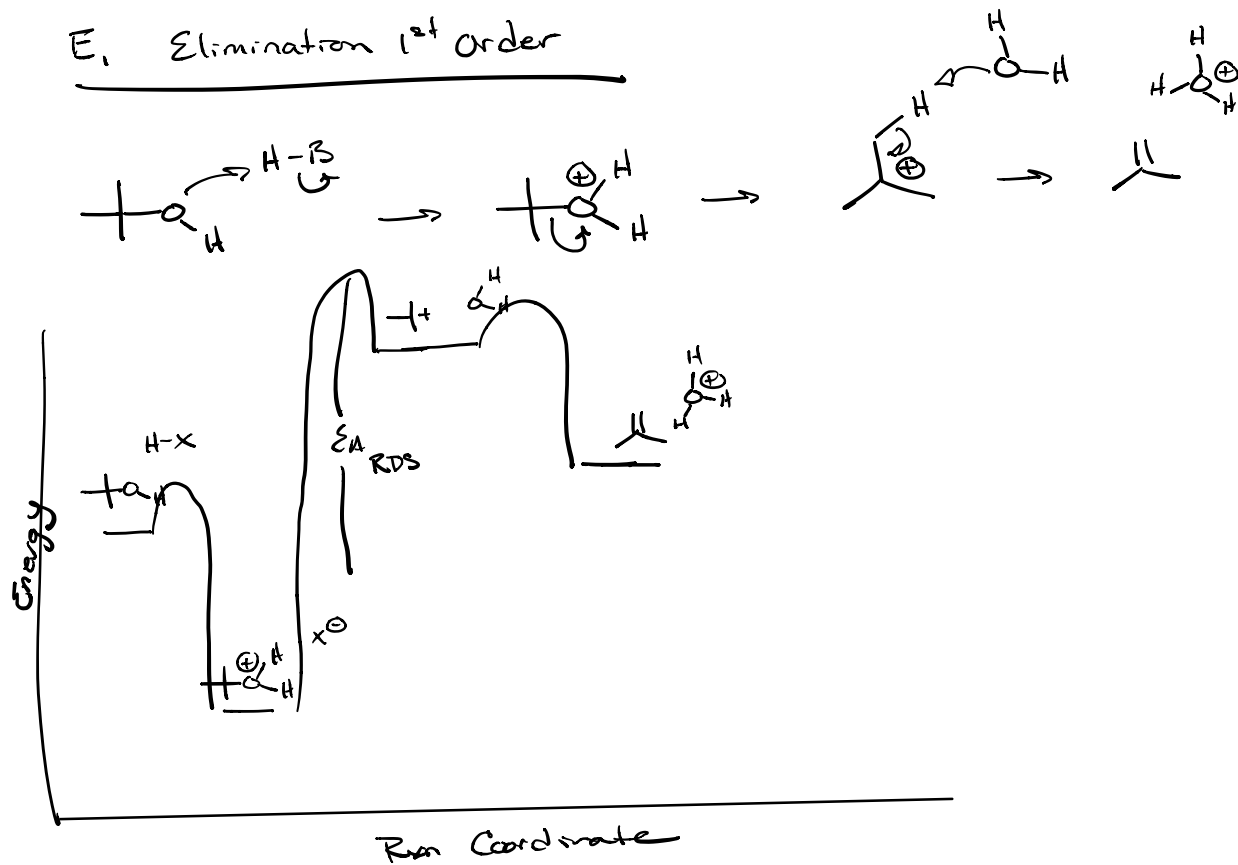 E₁ Elimination 1st Order
H
H
O-H
H
O⊕
H
H
H-B
O
H
⊕
H
O
H
⊕
H
O
H
+
H-X
O
H
EA
RDS
H
O⊕
H
H
X⊖
⊕
H
O
H
Energy
Rxn Coordinate